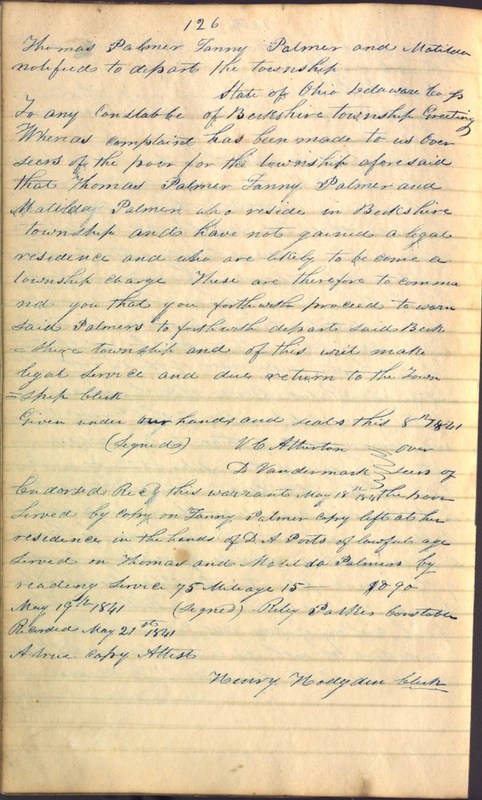 126
Thomas Palmer Fanny Palmer and Matilda
notified to depart the township
State of Ohio Delaware Co
To any constable of Berkshire township Greeting
Whereas complaint has been made to us Over
seers of the poor for the township aforesaid
that Thomas Palmer Fanny Palmer and
Matilda Palmer who reside in Berkshire
township and have not gained a legal
residence and who are likely to become a
township charge These are therefore to comma
nd you that you forthwith proceed to warn
said Palmers to forthwith depart said Berk
= shire township and of this writ make
legal service and due return to the Town
= ship clerk
Given under our hands and seals this 8th 1841
(Signed) V C Atherton over
D Vandermark seers of
Endorsed Recd this warrant May 18th 1841 the poor
Served by copy on Fanny Palmer copy left at her
residence in the hands of D A Ports of lawful age
Served on Thomas and Matilda Palmers by
reading Service 75 Mileage 15 — $0 90
May 19th 1841 (Signed) Riley Parker Constable
Recorded May 21st 1841
A true copy Attest
Henry Hodgden Clerk